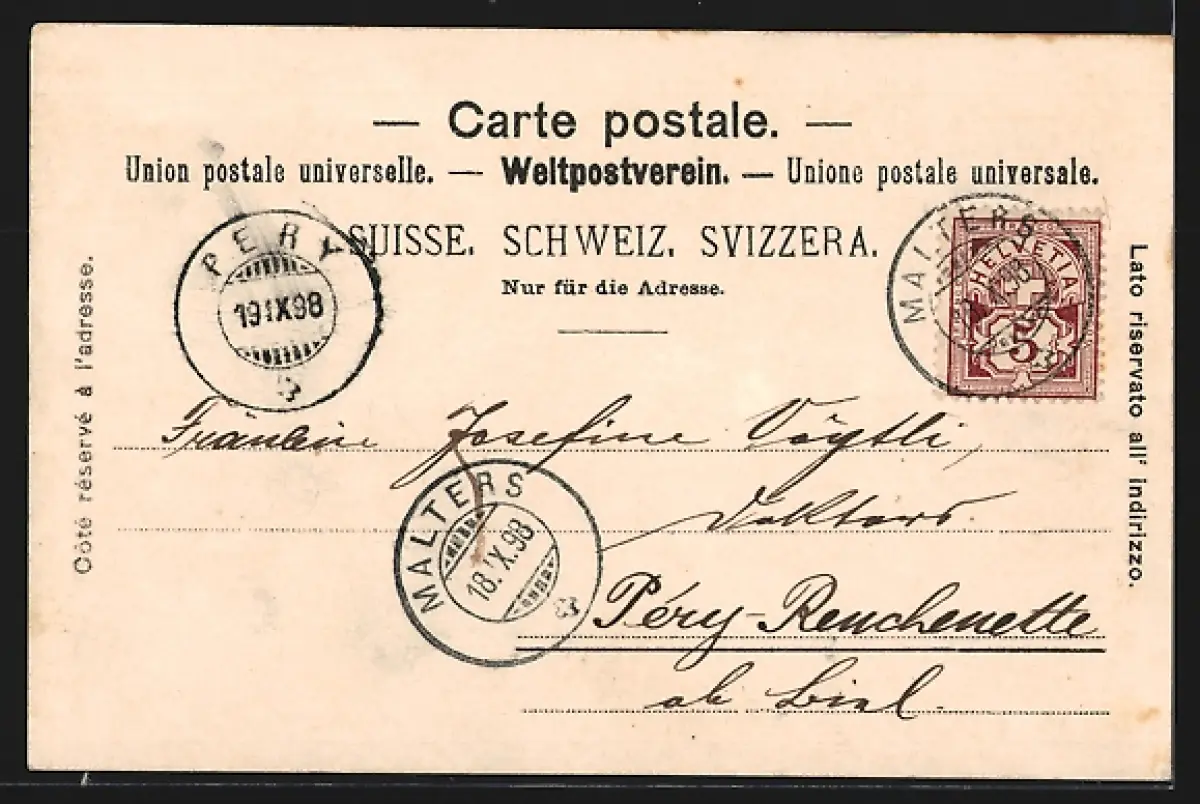 — Carte postale. —
Union postale universelle. — Weltpostverein. — Unione postale universale.
SUISSE. SCHWEIZ. SVIZZERA.
Nur für die Adresse.
Côté réservé à l'adresse.
Lato riservato all' indirizzo.
PERY
19 IX 98
MALTERS
HELVETIA
5
Fräulein Josefine Vögtli,
Doktors.
MALTERS
18. IX. 98
Péry-Reuchenette
ob Biel.